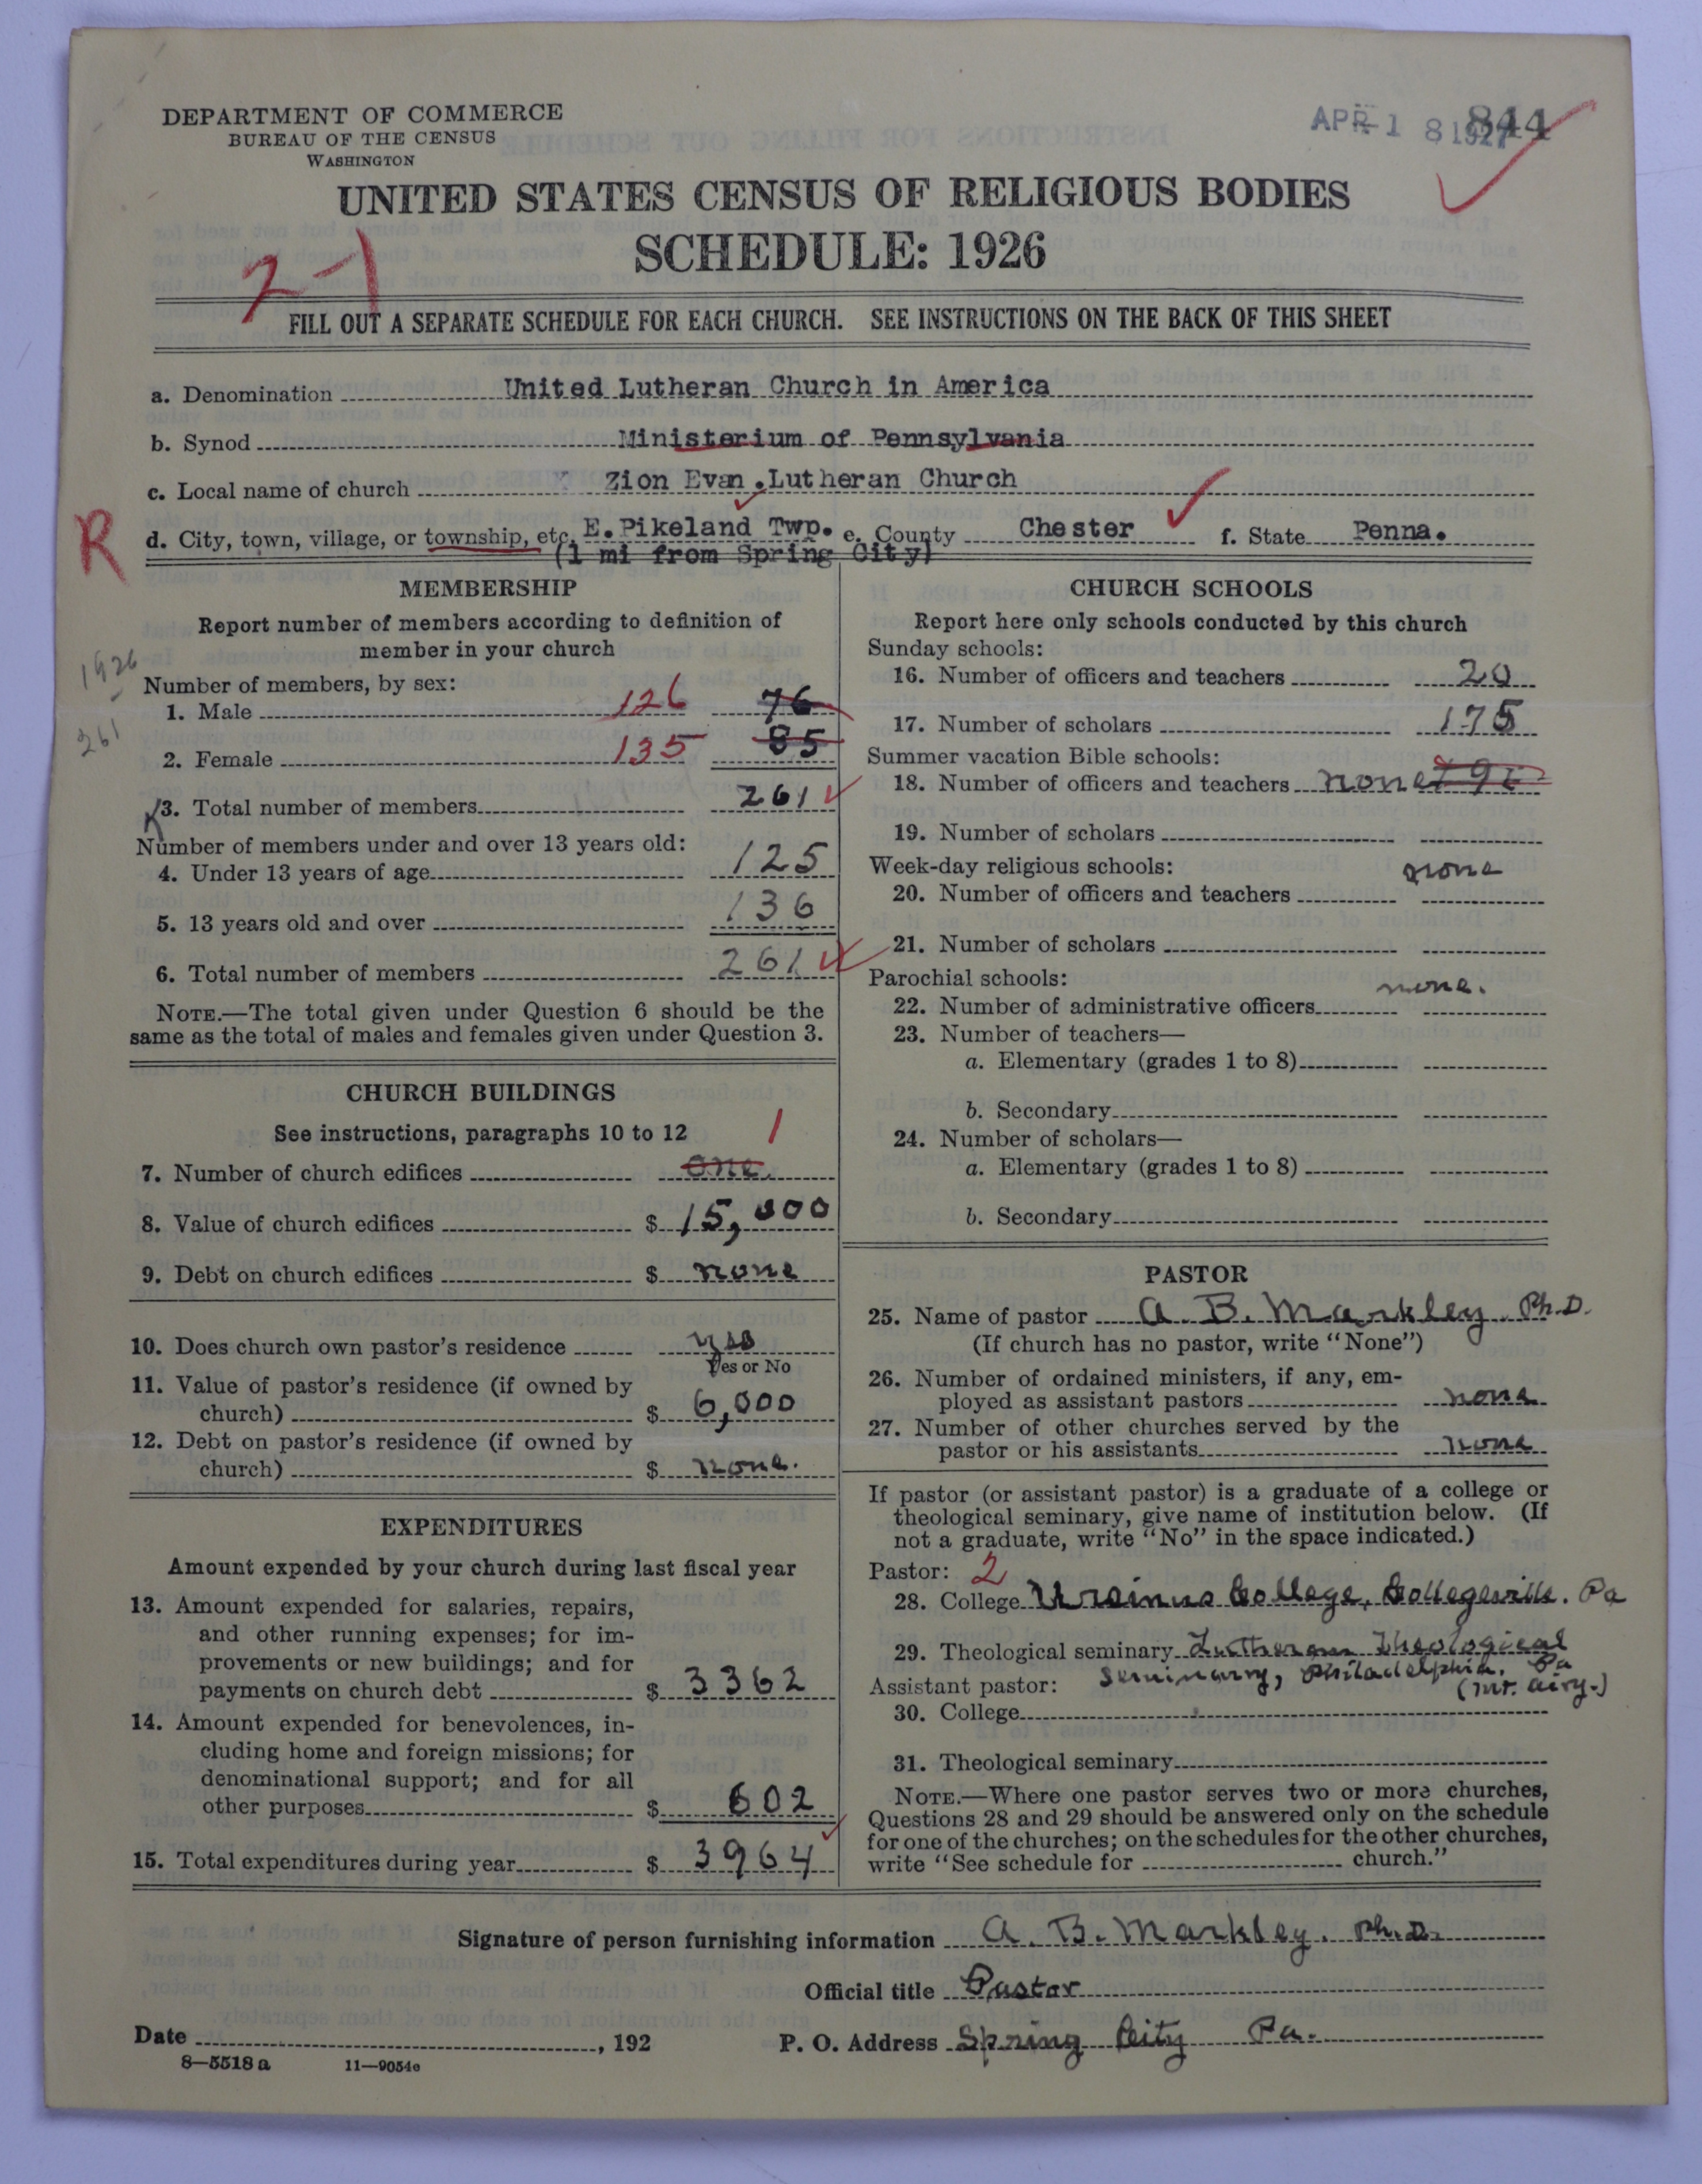 DEPARTMENT OF COMMERCE
BUREAU OF THE CENSUS
WASHINGTON
APR 18 1927
844
UNITED STATES CENSUS OF RELIGIOUS BODIES
SCHEDULE: 1926
2-1
FILL OUT A SEPARATE SCHEDULE FOR EACH CHURCH. SEE INSTRUCTIONS ON THE BACK OF THIS SHEET
a. Denomination United Lutheran Church in America
b. Synod Ministerium of Pennsylvania
c. Local name of church Zion Evan. Lutheran Church
R
d. City, town, village, or township, etc. E. Pikeland Twp. e. County Chester f. State Penna.
(1 mi from Spring City)
MEMBERSHIP
Report number of members according to definition of
member in your church
1926
-
261
Number of members, by sex:
1. Male 126 76
2. Female 135 85
3. Total number of members 261
Number of members under and over 13 years old:
4. Under 13 years of age 125
5. 13 years old and over 136
6. Total number of members 261
NOTE.—The total given under Question 6 should be the
same as the total of males and females given under Question 3.
CHURCH BUILDINGS
See instructions, paragraphs 10 to 12
1
7. Number of church edifices one.
8. Value of church edifices $ 15,000
9. Debt on church edifices $ none
10. Does church own pastor's residence yes
Yes or No
11. Value of pastor's residence (if owned by
church) $ 6,000
12. Debt on pastor's residence (if owned by
church) $ none.
EXPENDITURES
Amount expended by your church during last fiscal year
13. Amount expended for salaries, repairs,
and other running expenses; for im-
provements or new buildings; and for
payments on church debt $ 3362
14. Amount expended for benevolences, in-
cluding home and foreign missions; for
denominational support; and for all
other purposes $ 602
15. Total expenditures during year $ 3964
CHURCH SCHOOLS
Report here only schools conducted by this church
Sunday schools:
16. Number of officers and teachers 20
17. Number of scholars 175
Summer vacation Bible schools:
18. Number of officers and teachers none
19. Number of scholars
Week-day religious schools:
none
20. Number of officers and teachers
21. Number of scholars
Parochial schools:
none.
22. Number of administrative officers
23. Number of teachers—
a. Elementary (grades 1 to 8)
b. Secondary
24. Number of scholars—
a. Elementary (grades 1 to 8)
b. Secondary
PASTOR
25. Name of pastor A. B. Markley. Ph.D.
(If church has no pastor, write "None")
26. Number of ordained ministers, if any, em-
ployed as assistant pastors none
27. Number of other churches served by the
pastor or his assistants none
If pastor (or assistant pastor) is a graduate of a college or
theological seminary, give name of institution below. (If
not a graduate, write "No" in the space indicated.)
Pastor: 2
28. College Ursinus College, Collegeville. Pa
29. Theological seminary Lutheran Theological
Seminary, Philadelphia. Pa
Assistant pastor: (Mt. Airy.)
30. College
31. Theological seminary
NOTE.—Where one pastor serves two or more churches,
Questions 28 and 29 should be answered only on the schedule
for one of the churches; on the schedules for the other churches,
write "See schedule for church."
Signature of person furnishing information A. B. Markley. Ph.D.
Official title Pastor
Date , 192 P. O. Address Spring City Pa.
8—5518 a 11—9054e